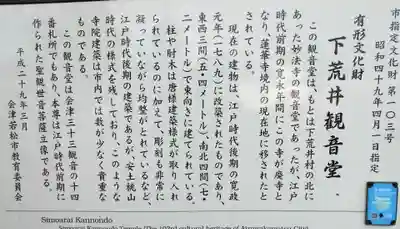 市指定文化財 第一〇三号
昭和四十九年四月一日指定
有形文化財
下荒井観音堂
この観音堂は、もとは下荒井村の北に
あった妙法寺の観音堂であったが、江戸
時代前期の寛永年間にこの寺が廃寺と
なり、蓮華寺境内の現在地に移されたと
されている。
現在の建物は、江戸時代後期の寛政
元年(一七八九)に改築されたものであり、
東西三間(五・四メートル)、南北四間(七・
二メートル)で東向きに建てられている。
柱や肘木は唐様建築様式が取り入れ
られているのに加えて、彫刻も非常に
凝っていながら均整がとれているなど、
江戸時代後期の建築であるが、安土桃山
時代の様式を残しており、このような
寺院建築は市内では数が少なく貴重な
ものである。
この観音堂は会津三十三観音の十四
番札所でもあり、本尊は江戸時代前期に
作られた聖観世音菩薩立像である。
平成二十九年三月
会津若松市教育委員会
Simoarai Kannondo